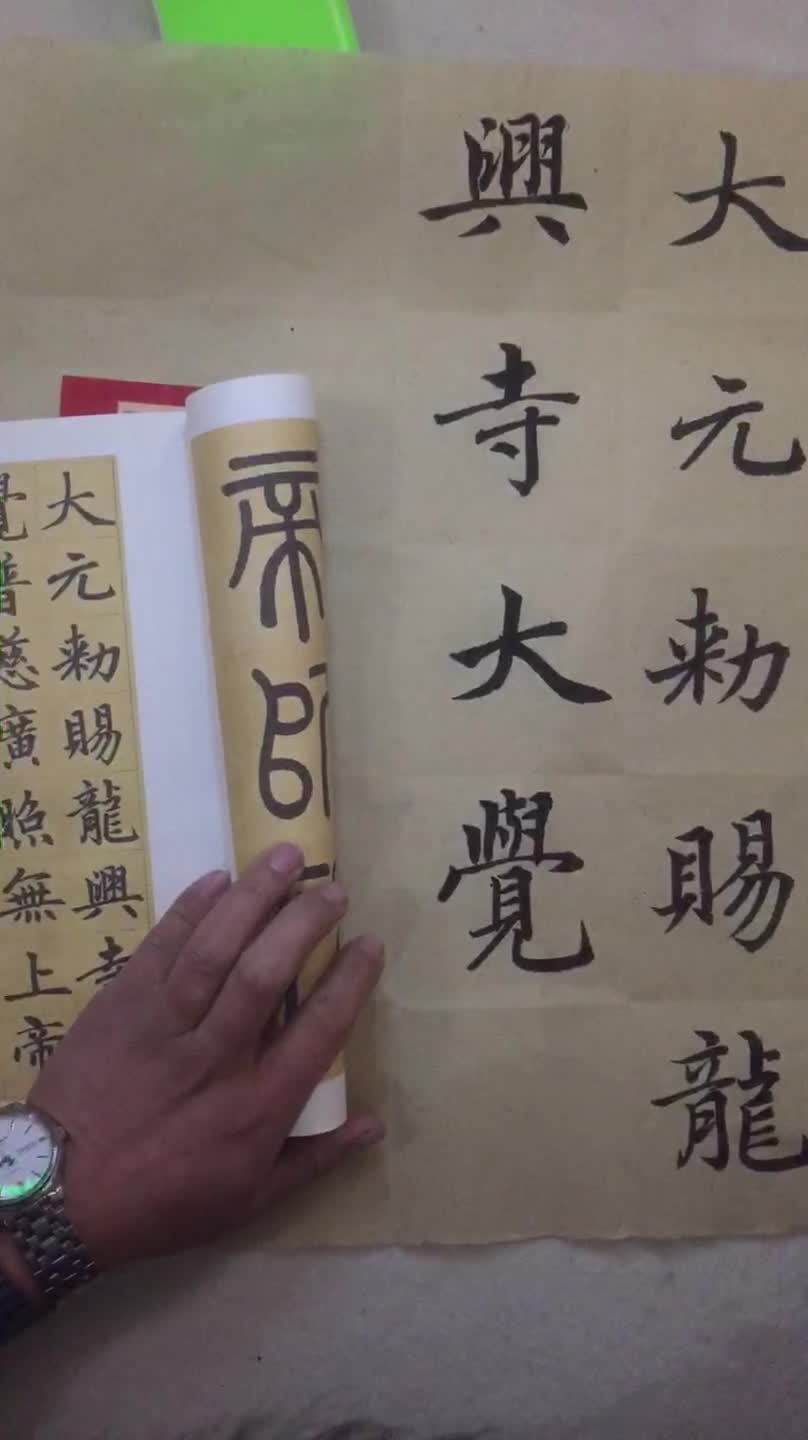 大元勅賜龍
興寺大覺
帝師
大元勅賜龍興寺
覺普慈廣照無上帝